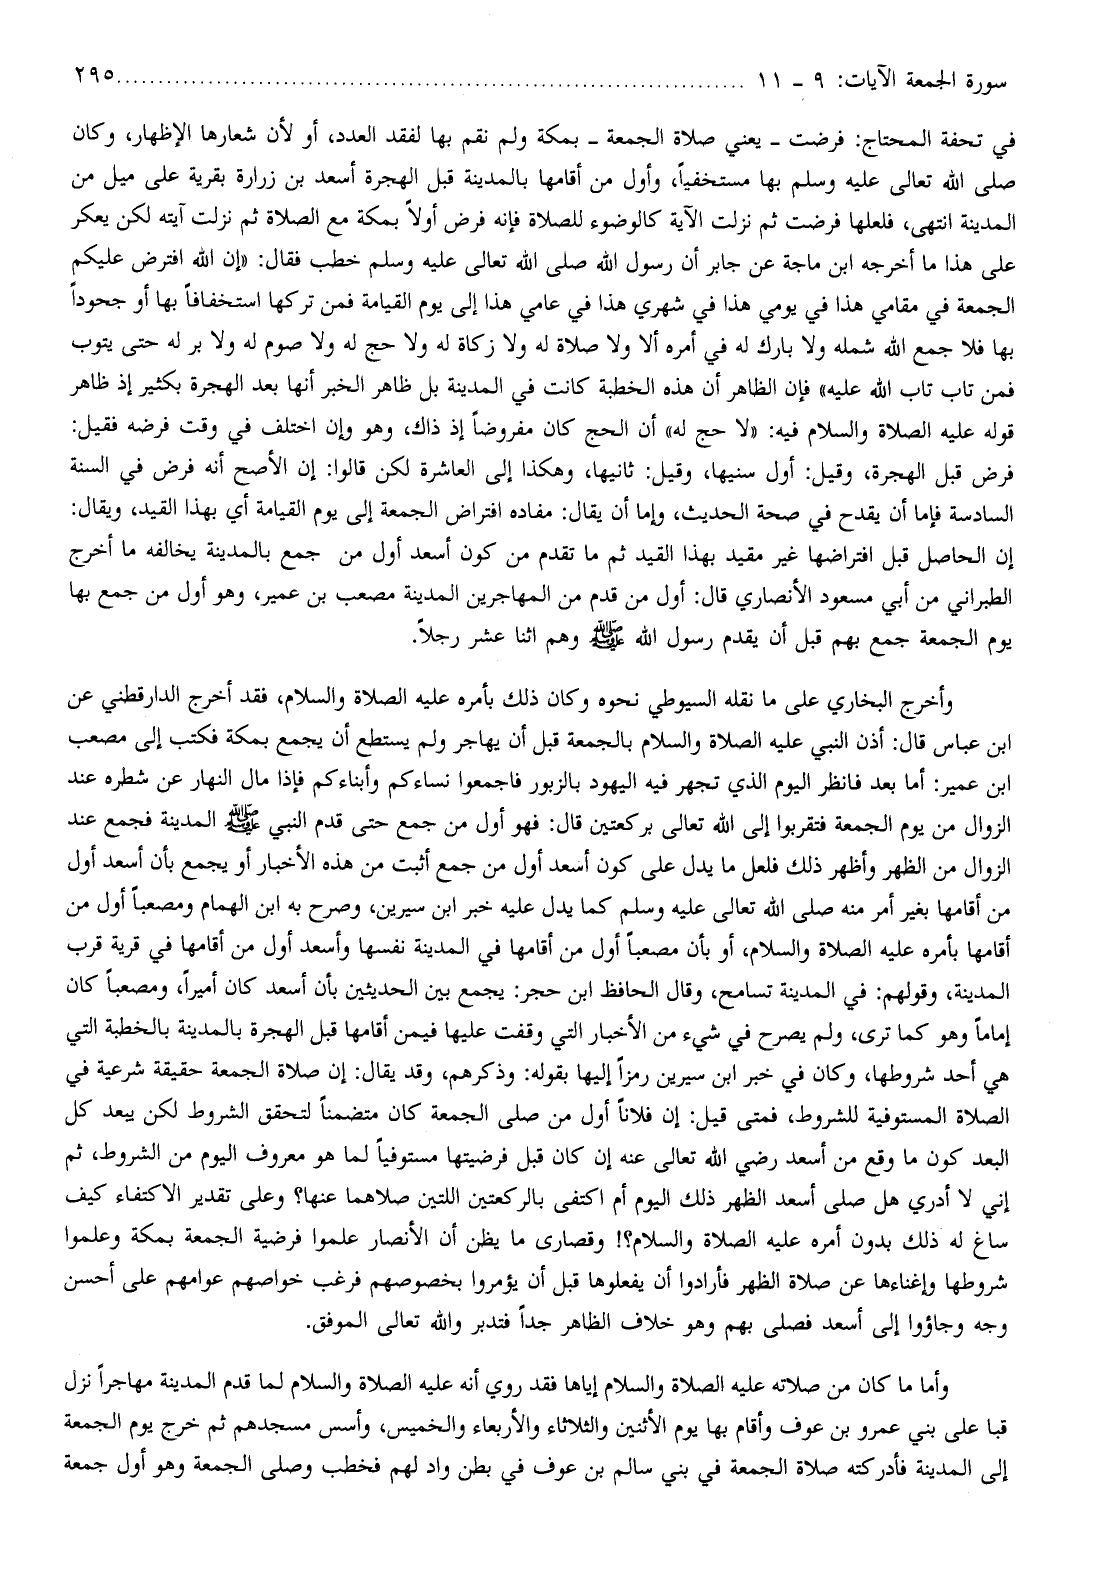 سورة الجمعة الآيات: ٩ ـ ١١ ........................................................................... ٢٩٥
في تحفة المحتاج: فرضت ـ يعني صلاة الجمعة ـ بمكة ولم نقم بها لفقد العدد، أو لأن شعارها الإظهار، وكان
صلى الله تعالى عليه وسلم بها مستخفياً، وأول من أقامها بالمدينة قبل الهجرة أسعد بن زرارة بقرية على ميل من
المدينة انتهى، فلعلها فرضت ثم نزلت الآية كالوضوء للصلاة فإنه فرض أولاً بمكة مع الصلاة ثم نزلت آيته لكن يعكر
على هذا ما أخرجه ابن ماجة عن جابر أن رسول الله صلى الله تعالى عليه وسلم خطب فقال: «إن الله افترض عليكم
الجمعة في مقامي هذا في يومي هذا في شهري هذا في عامي هذا إلى يوم القيامة فمن تركها استخفافاً بها أو جحوداً
بها فلا جمع الله شمله ولا بارك له في أمره ألا ولا صلاة له ولا زكاة له ولا حج له ولا صوم له ولا بر له حتى يتوب
فمن تاب تاب الله عليه» فإن الظاهر أن هذه الخطبة كانت في المدينة بل ظاهر الخبر أنها بعد الهجرة بكثير إذ ظاهر
قوله عليه الصلاة والسلام فيه: «لا حج له» أن الحج كان مفروضاً إذ ذاك، وهو وإن اختلف في وقت فرضه فقيل:
فرض قبل الهجرة، وقيل: أول سنيها، وقيل: ثانيها، وهكذا إلى العاشرة لكن قالوا: إن الأصح أنه فرض في السنة
السادسة فإما أن يقدح في صحة الحديث، وإما أن يقال: مفاده افتراض الجمعة إلى يوم القيامة أي بهذا القيد، ويقال:
إن الحاصل قبل افتراضها غير مقيد بهذا القيد ثم ما تقدم من كون أسعد أول من جمع بالمدينة يخالفه ما أخرج
الطبراني من أبي مسعود الأنصاري قال: أول من قدم من المهاجرين المدينة مصعب بن عمير، وهو أول من جمع بها
يوم الجمعة جمع بهم قبل أن يقدم رسول الله ﷺ وهم اثنا عشر رجلاً.
وأخرج البخاري على ما نقله السيوطي نحوه وكان ذلك بأمره عليه الصلاة والسلام، فقد أخرج الدارقطني عن
ابن عباس قال: أذن النبي عليه الصلاة والسلام بالجمعة قبل أن يهاجر ولم يستطع أن يجمع بمكة فكتب إلى مصعب
ابن عمير: أما بعد فانظر اليوم الذي تجهر فيه اليهود بالزبور فاجمعوا نساءكم وأبناءكم فإذا مال النهار عن شطره عند
الزوال من يوم الجمعة فتقربوا إلى الله تعالى بركعتين قال: فهو أول من جمع حتى قدم النبي ﷺ المدينة فجمع عند
الزوال من الظهر وأظهر ذلك فلعل ما يدل على كون أسعد أول من جمع أثبت من هذه الأخبار أو يجمع بأن أسعد أول
من أقامها بغير أمر منه صلى الله تعالى عليه وسلم كما يدل عليه خبر ابن سيرين، وصرح به ابن الهمام ومصعباً أول من
أقامها بأمره عليه الصلاة والسلام، أو بأن مصعباً أول من أقامها في المدينة نفسها وأسعد أول من أقامها في قرية قرب
المدينة، وقولهم: في المدينة تسامح، وقال الحافظ ابن حجر: يجمع بين الحديثين بأن أسعد كان أميراً، ومصعباً كان
إماماً وهو كما ترى، ولم يصرح في شيء من الأخبار التي وقفت عليها فيمن أقامها قبل الهجرة بالمدينة بالخطبة التي
هي أحد شروطها، وكان في خبر ابن سيرين رمزاً إليها بقوله: وذكرهم، وقد يقال: إن صلاة الجمعة حقيقة شرعية في
الصلاة المستوفية للشروط، فمتى قيل: إن فلاناً أول من صلى الجمعة كان متضمناً لتحقق الشروط لكن يبعد كل
البعد كون ما وقع من أسعد رضي الله تعالى عنه إن كان قبل فرضيتها مستوفياً لما هو معروف اليوم من الشروط، ثم
إني لا أدري هل صلى أسعد الظهر ذلك اليوم أم اكتفى بالركعتين اللتين صلاهما عنها؟ وعلى تقدير الاكتفاء كيف
ساغ له ذلك بدون أمره عليه الصلاة والسلام؟! وقصارى ما يظن أن الأنصار علموا فرضية الجمعة بمكة وعلموا
شروطها وإغناءها عن صلاة الظهر فأرادوا أن يفعلوها قبل أن يؤمروا بخصوصهم فرغب خواصهم عوامهم على أحسن
وجه وجاؤوا إلى أسعد فصلى بهم وهو خلاف الظاهر جداً فتدبر والله تعالى الموفق.
وأما ما كان من صلاته عليه الصلاة والسلام إياها فقد روي أنه عليه الصلاة والسلام لما قدم المدينة مهاجراً نزل
قبا على بني عمرو بن عوف وأقام بها يوم الأثنين والثلاثاء والأربعاء والخميس، وأسس مسجدهم ثم خرج يوم الجمعة
إلى المدينة فأدركته صلاة الجمعة في بني سالم بن عوف في بطن واد لهم فخطب وصلى الجمعة وهو أول جمعة